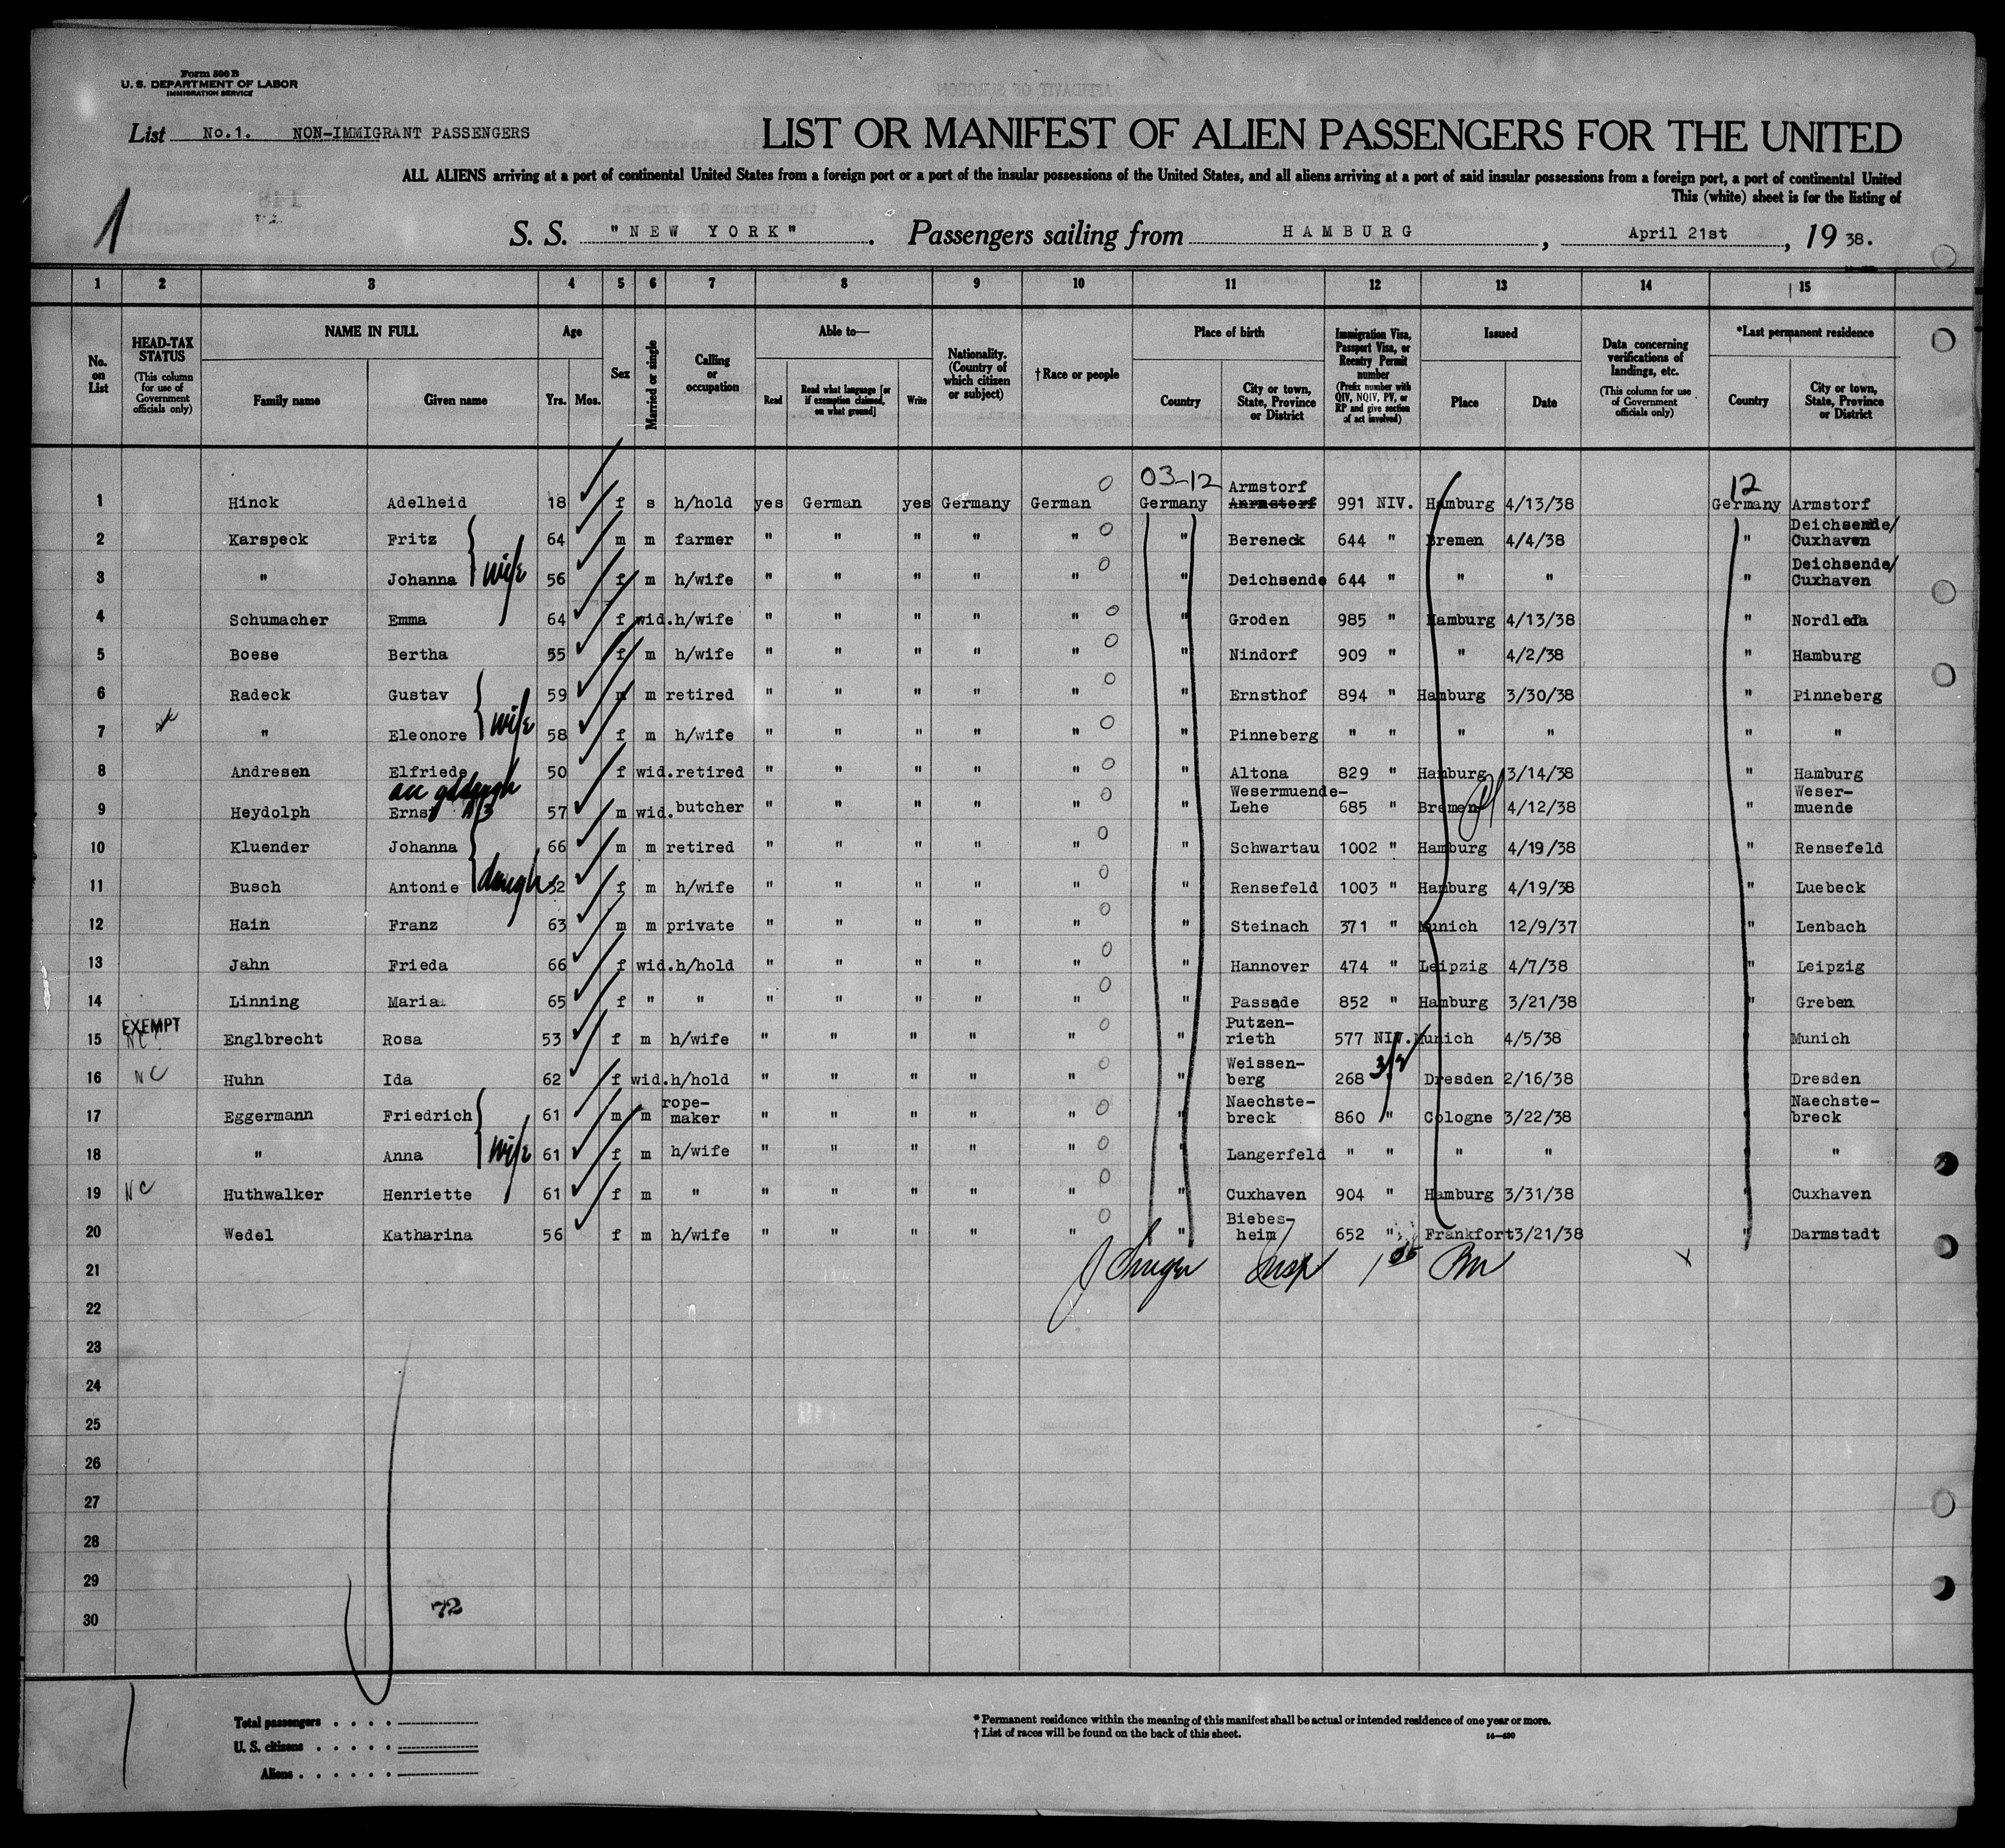 Form 500 B
U. S. DEPARTMENT OF LABOR
IMMIGRATION SERVICE
List No.1. NON-IMMIGRANT PASSENGERS
LIST OR MANIFEST OF ALIEN PASSENGERS FOR THE UNITED
ALL ALIENS arriving at a port of continental United States from a foreign port or a port of the insular possessions of the United States, and all aliens arriving at a port of said insular possessions from a foreign port, a port of continental United
This (white) sheet is for the listing of
1
S. S. "NEW YORK". Passengers sailing from HAMBURG, April 21st, 1938.
1 2 3 4 5 6 7 8 9 10 11 12 13 14 15
No. on List
HEAD-TAX STATUS (This column for use of Government officials only)
NAME IN FULL Family name Given name
Age Yrs. Mos.
Sex
Married or single
Calling or occupation
Able to— Read Read what language [or if exemption claimed, on what ground] Write
Nationality. (Country of which citizen or subject)
†Race or people
Place of birth Country City or town, State, Province or District
Immigration Visa, Passport Visa, or Reentry Permit number (Prefix number with QIV, NQIV, PV, or RP and give section of act involved)
Issued Place Date
Data concerning verifications of landings, etc. (This column for use of Government officials only)
*Last permanent residence Country City or town, State, Province or District
03-12 12
1 Hinck Adelheid 18 f s h/hold yes German yes Germany German Germany Armstorf Anrmstorf 991 NIV. Hamburg 4/13/38 Germany Armstorf
2 Karspeck Fritz 64 m m farmer " " " " " " Bereneck 644 " Bremen 4/4/38 " Deichsende/ Cuxhaven
3 " Johanna wife 56 f m h/wife " " " " " " Deichsende 644 " " " " Deichsende/ Cuxhaven
4 Schumacher Emma 64 f wid. h/wife " " " " " " Groden 985 " Hamburg 4/13/38 " Nordleda
5 Boese Bertha 55 f m h/wife " " " " " " Nindorf 909 " " 4/2/38 " Hamburg
6 Radeck Gustav 59 m m retired " " " " " " Ernsthof 894 " Hamburg 3/30/38 " Pinneberg
7 " Eleonore wife 58 f m h/wife " " " " " " Pinneberg " " " " " "
8 Andresen Elfriede 50 f wid. retired " " " " " " Altona 829 " Hamburg 3/14/38 " Hamburg
9 Heydolph Ernst 57 m wid. butcher " " " " " " Wesermuende- Lehe 685 " Bremen 4/12/38 " Weser- muende
10 Kluender Johanna 66 m m retired " " " " " " Schwartau 1002 " Hamburg 4/19/38 " Rensefeld
11 Busch Antonie daugh 32 f m h/wife " " " " " " Rensefeld 1003 " Hamburg 4/19/38 " Luebeck
12 Hain Franz 63 m m private " " " " " " Steinach 371 " Munich 12/9/37 " Lenbach
13 Jahn Frieda 66 f wid. h/hold " " " " " " Hannover 474 " Leipzig 4/7/38 " Leipzig
14 Linning Maria 65 f " " " " " " " " Passade 852 " Hamburg 3/21/38 " Greben
15 EXEMPT NC Englbrecht Rosa 53 f m h/wife " " " " " " Putzen- rieth 577 NIV. Munich 4/5/38 Munich
16 NC Huhn Ida 62 f wid. h/hold " " " " " " Weissen- berg 268 3/2 Dresden 2/16/38 Dresden
17 Eggermann Friedrich 61 m m rope- maker " " " " " " Naechste- breck 860 " Cologne 3/22/38 Naechste- breck
18 " Anna wife 61 f m h/wife " " " " " " Langerfeld " " " " "
19 NC Huthwalker Henriette 61 f m " " " " " " " Cuxhaven 904 " Hamburg 3/31/38 " Cuxhaven
20 Wedel Katharina 56 f m h/wife " " " " " " Biebes- heim 652 " Frankfort 3/21/38 " Darmstadt
21 Insp
22
23
24
25
26
27
28
29
30
72
Total passengers
U. S. citizens
Aliens
* Permanent residence within the meaning of this manifest shall be actual or intended residence of one year or more.
† List of races will be found on the back of this sheet.